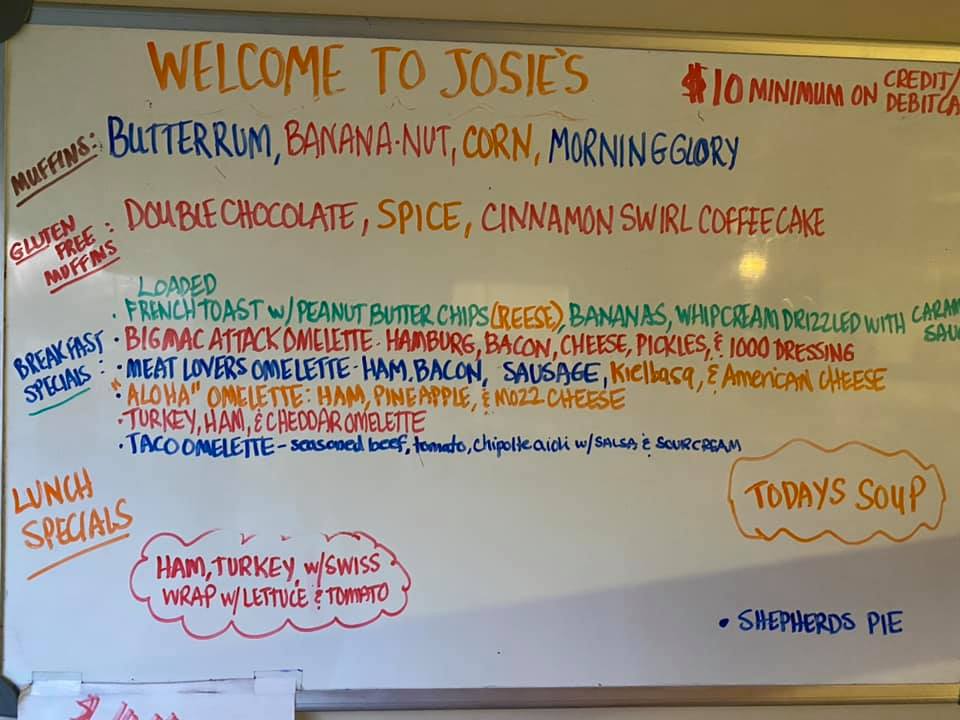 WELCOME TO JOSIE'S
$10 MINIMUM ON CREDIT/
DEBIT CA
MUFFINS: BUTTERRUM, BANANA-NUT, CORN, MORNING GLORY
GLUTEN FREE MUFFINS: DOUBLE CHOCOLATE, SPICE, CINNAMON SWIRL COFFEE CAKE
BREAKFAST SPECIALS:
LOADED
· FRENCH TOAST W/ PEANUT BUTTER CHIPS (REESE), BANANAS, WHIPCREAM DRIZZLED WITH CARAM
SAUC
· BIGMAC ATTACK OMELETTE - HAMBURG, BACON, CHEESE, PICKLES, & 1000 DRESSING
· MEAT LOVERS OMELETTE - HAM, BACON, SAUSAGE, Kielbasa, & American CHEESE
· "ALOHA" OMELETTE: HAM, PINEAPPLE, & MOZZ CHEESE
· TURKEY, HAM, & CHEDDAR OMELETTE
· TACO OMELETTE - seasoned beef, tomato, chipolte aioli w/ SALSA & SOUR CREAM
LUNCH
SPECIALS
TODAYS SOUP
HAM, TURKEY, W/ SWISS
WRAP W/ LETTUCE & TOMATO
• SHEPHERDS PIE